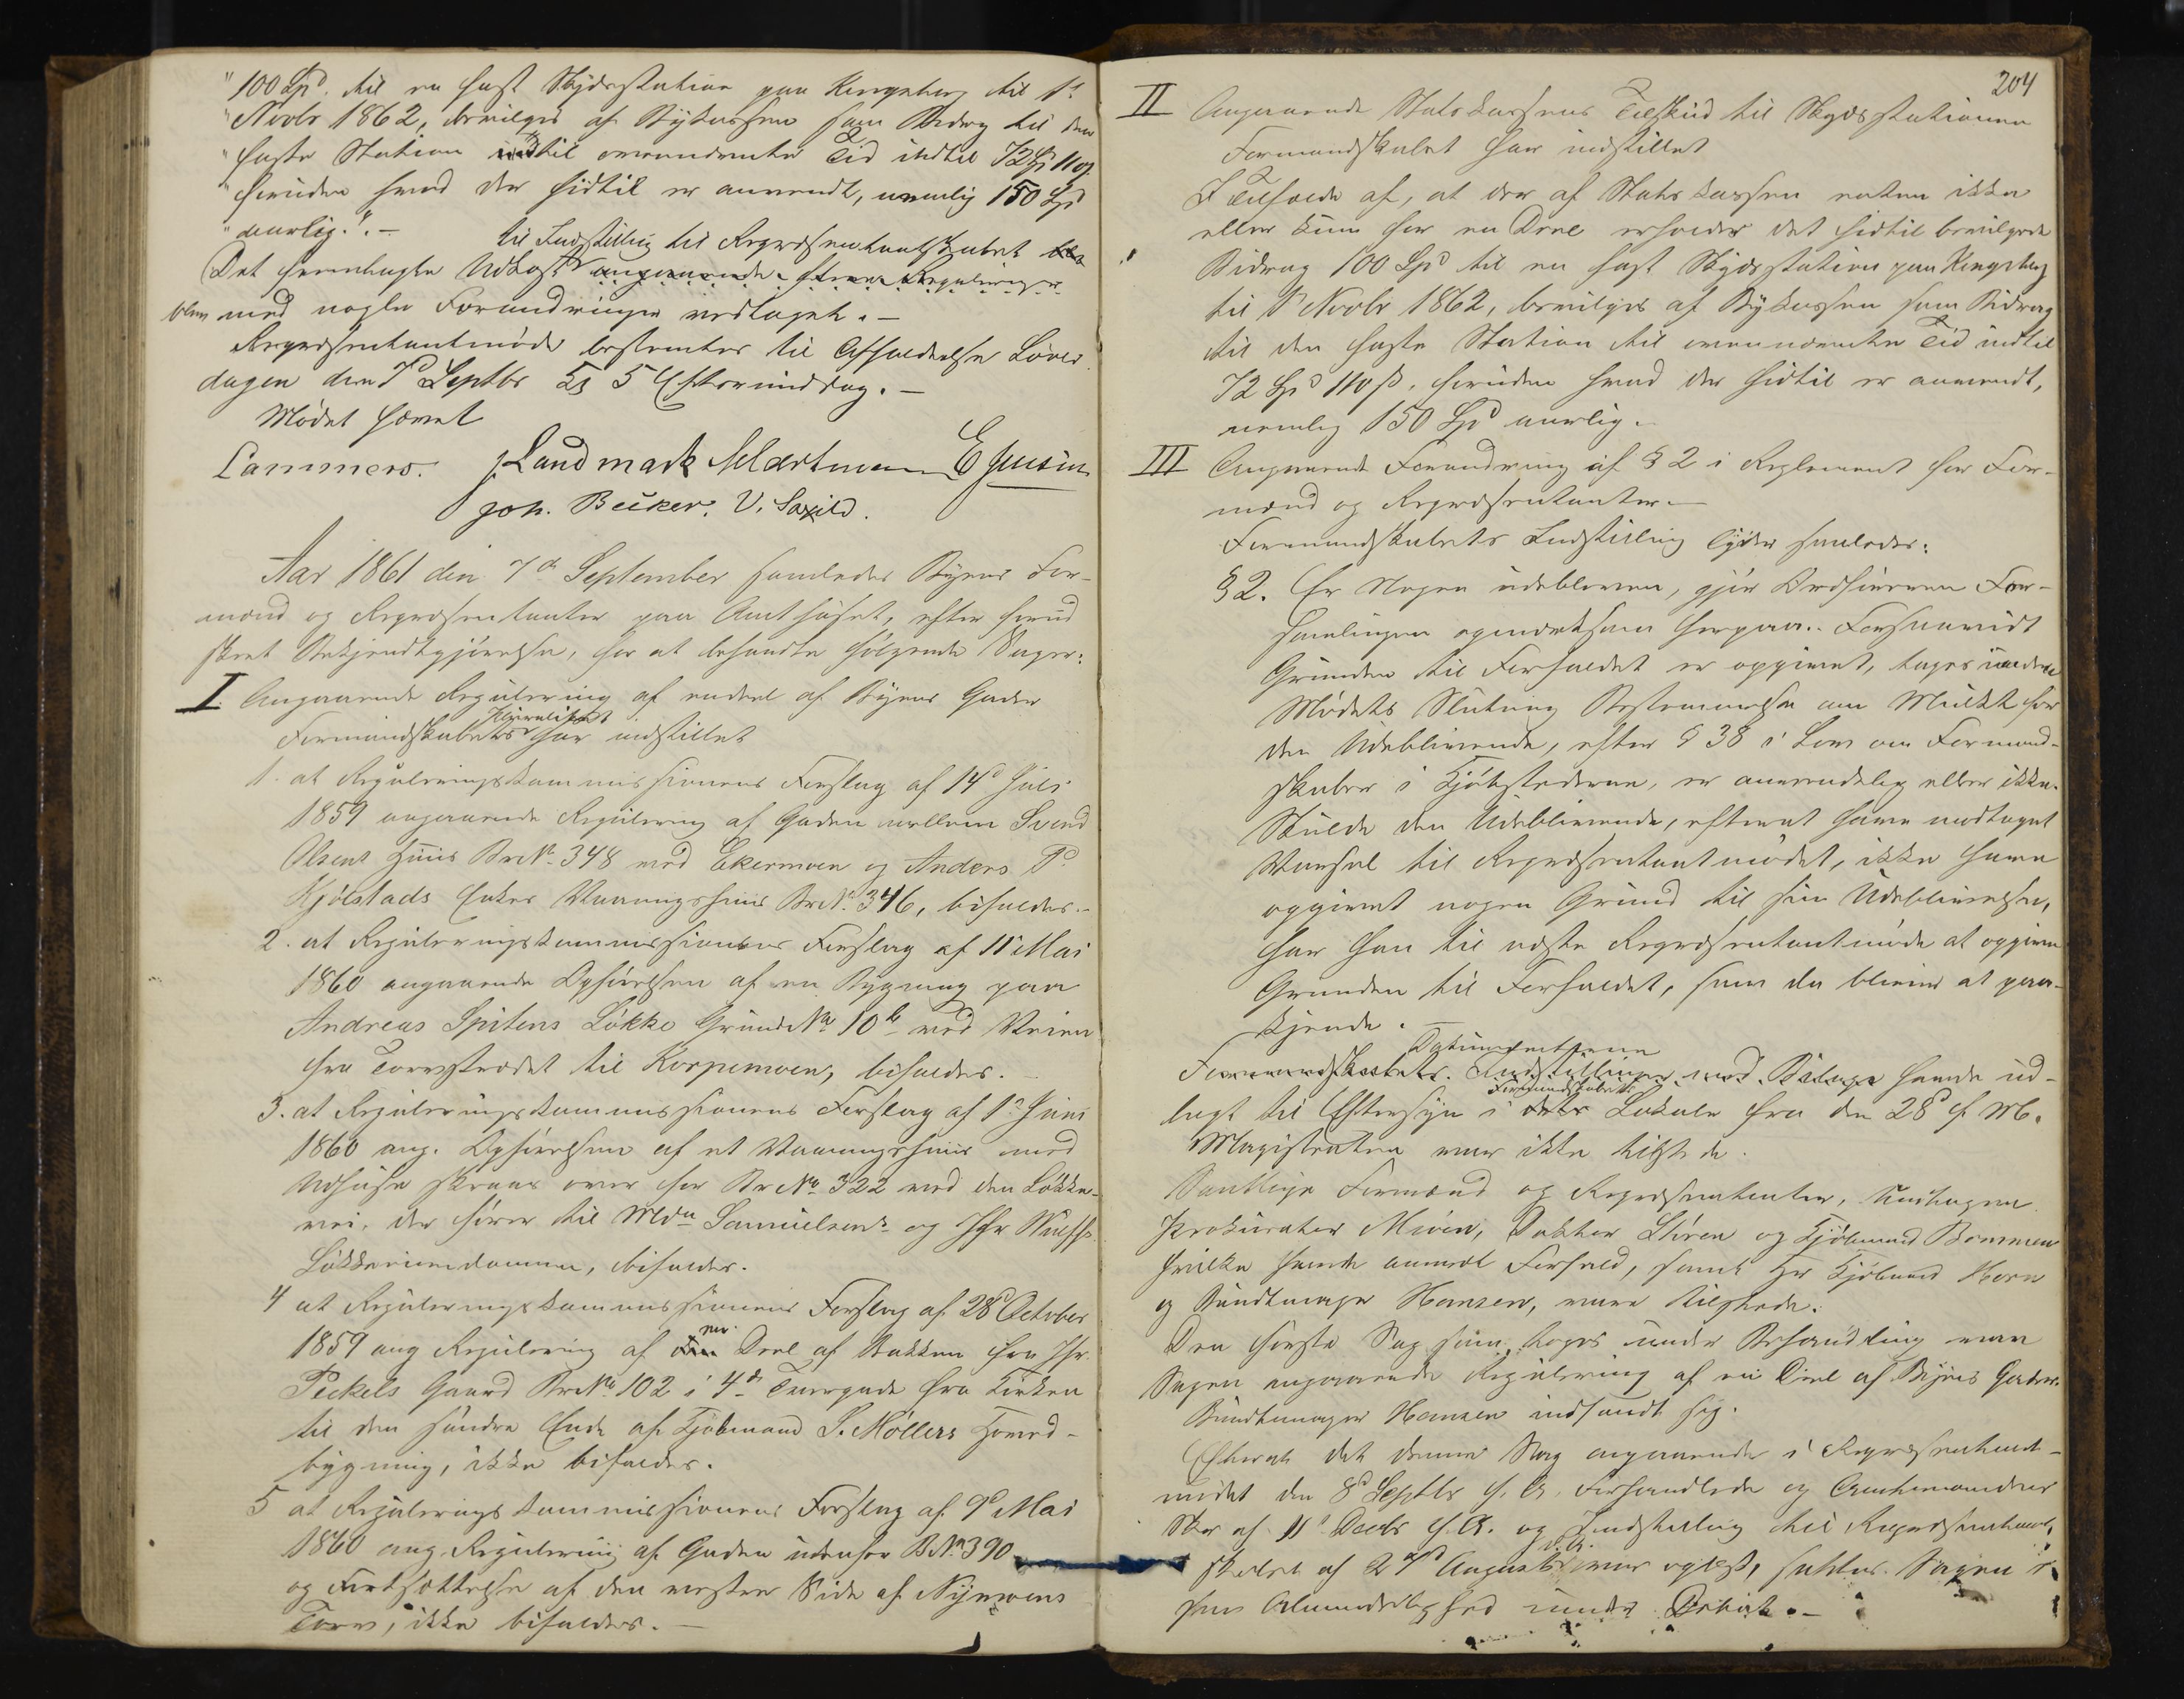 "100 Spd. til en fast Skydsstation paa Kongsberg til 1ste
"Novbr 1862, bevilges af Bykassen som Bidrag til den
"faste Station indtil ovennævnte Tid indtil 72 Spd 110 ß
"foruden hvad der hidtil er anvendt, nemlig 150 Spd
"aarlig." –
til Indstilling til Repræsentantskabet
Det fremlagte Udkast angaaende
blev med nogle Forandringer vedtaget. –
Repræsentantmøde bestemtes til Afholdelse Løver
dagen den 7de Septbr Kl 5 Eftermiddag. –
Mødet hævet
Lammers. Landmark Meldtmann E Jensen
Joh. Becker. V. Saxild.
Aar 1861 den 7de September samledes Byens For-
mænd og Repræsentanter paa Amthuset, efter forud
skeet Bekjendtgjørelse, for at behandle følgende Sager:
I. Angaaende Regulering af endeel af Byens Gader
Formandskabets har indstillet
1. at Reguleringskommissionens Forslag af 14de Juli
1859 angaaende Regulering af Gaden mellem Svend
Olsens Huus Br No 348 ved Ekermoen og Anders P.
Kjølstads Enkes Vaaningshuus Br No. 346, bifaldes. –
2. at Reguleringskommissionens Forslag af 11te Mai
1860 angaaende Opførelsen af en Bygning paa
Andreas Spitens Løkke Grund No 10 b ved Veien
fra Torvstrædet til Korpemoen, bifaldes. –
3. at Reguleringskommissionens Forslag af 1ste Juni
1860 ang. Opførelsen af et Vaaningshuus med
Udhuse skraas over for Br No 322 ved den Løkke-
vei, der fører til Mdm Samuelsens og Jfr Wulffs
Løkkeeiendomme, bifaldes.
4 at Reguleringskommissionens Forslag af 28de October
1859 ang Regulering af en Deel af Bakken fra Hr.
Peckels Gaard Br No 102 i 4de Tvergade fra Kirken
til den søndre Ende af Kjøbmand S. Møllers Hoved-
bygning, ikke bifaldes.
5 at Reguleringskommissionens Forslag af 9de Mai
1860 ang. Regulering af Gaden udenfor B No 390
og Fortsættelse af den vestre Side af Nymoens
Torv, ikke bifaldes. –
204
II Angaaende Statskassens Tilskud til Skydsstationen
Formandskabet har indstillet
I Tilfælde af, at der af Statskassen enten ikke
eller kun for en Deel erholdes det hidtil bevilgede
Bidrag 100 Spd til en fast Skydsstation paa Kongsberg
til 1ste Novbr 1862, bevilges af Bykassen som Bidrag
til den faste Station til ovennævnte Tid indtil
72 Spd 110 ß, foruden hvad der hidtil er anvendt,
nemlig 150 Spd aarlig. –
III Angaaende Forandring af § 2 i Reglement for For-
mænd og Repræsentanter. –
Formandskabets Indstilling lyder saaledes:
§ 2. Er Nogen udebleven, gjør Ordføreren For-
samlingen opmærksom herpaa. Forsaavidt
Grunden til Forfaldet er opgivet, tages under
Mødets Slutning Bestemmelse om Mulkt for
den Udeblivende, efter § 38 i Lov om Formand-
skaber i Kjøbstæderne, er anvendelig eller ikke.
Skulde den Udeblivende, efterat have modtaget
Varsel til Repræsentantmødet, ikke have
opgivet nogen Grund til sin Udeblivelse,
har han til næste Repræsentantmøde at opgive
Grunden til Forfaldet, som da bliver at paa-
kjende. –
Dokumenterne
Formandskabets Indstillinger med Bilage havde ud-
Formandskabets
lagt til Eftersyn i dets Lokale fra den 28de f. M.
Magistraten var ikke tilstede.
Samtlige Formænd og Repræsentanter, undtagen
Prokurator Moien, Doktor Støren og Kjøbmand Bommen
hvilke havde anmeldt Forfald, samt Hr Kjøbmd Horn
og Bundtmager Hansen, vare tilstede.
Den første Sag som toges under Behandling var
Sagen angaaende Regulering af en Deel af Byens Gader.
Bundtmager Hansen indfandt sig.
Efterat det denne Sag angaaende i Repræsentant-
mødet den 8de Septbr f. A. Forhandlede og Amtmandens
Skr af 11te Decbr f. A. og Indstilling til Repræsentant-
skabet af 27de August d. A. var oplæst, sattes Sagen i
sin Almindelighed under Debat. –